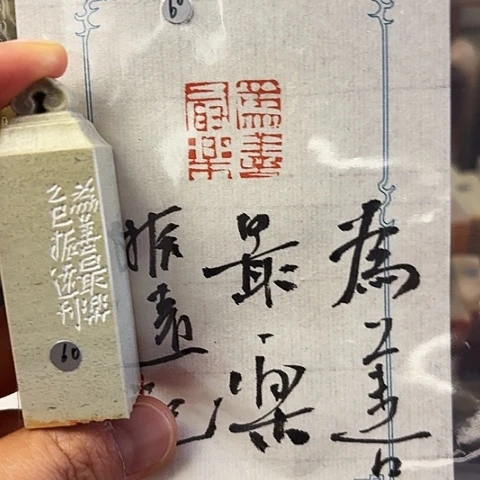 60
為善
最樂
為善
最樂
振遠
為善最樂
乙巳振遠刊
60